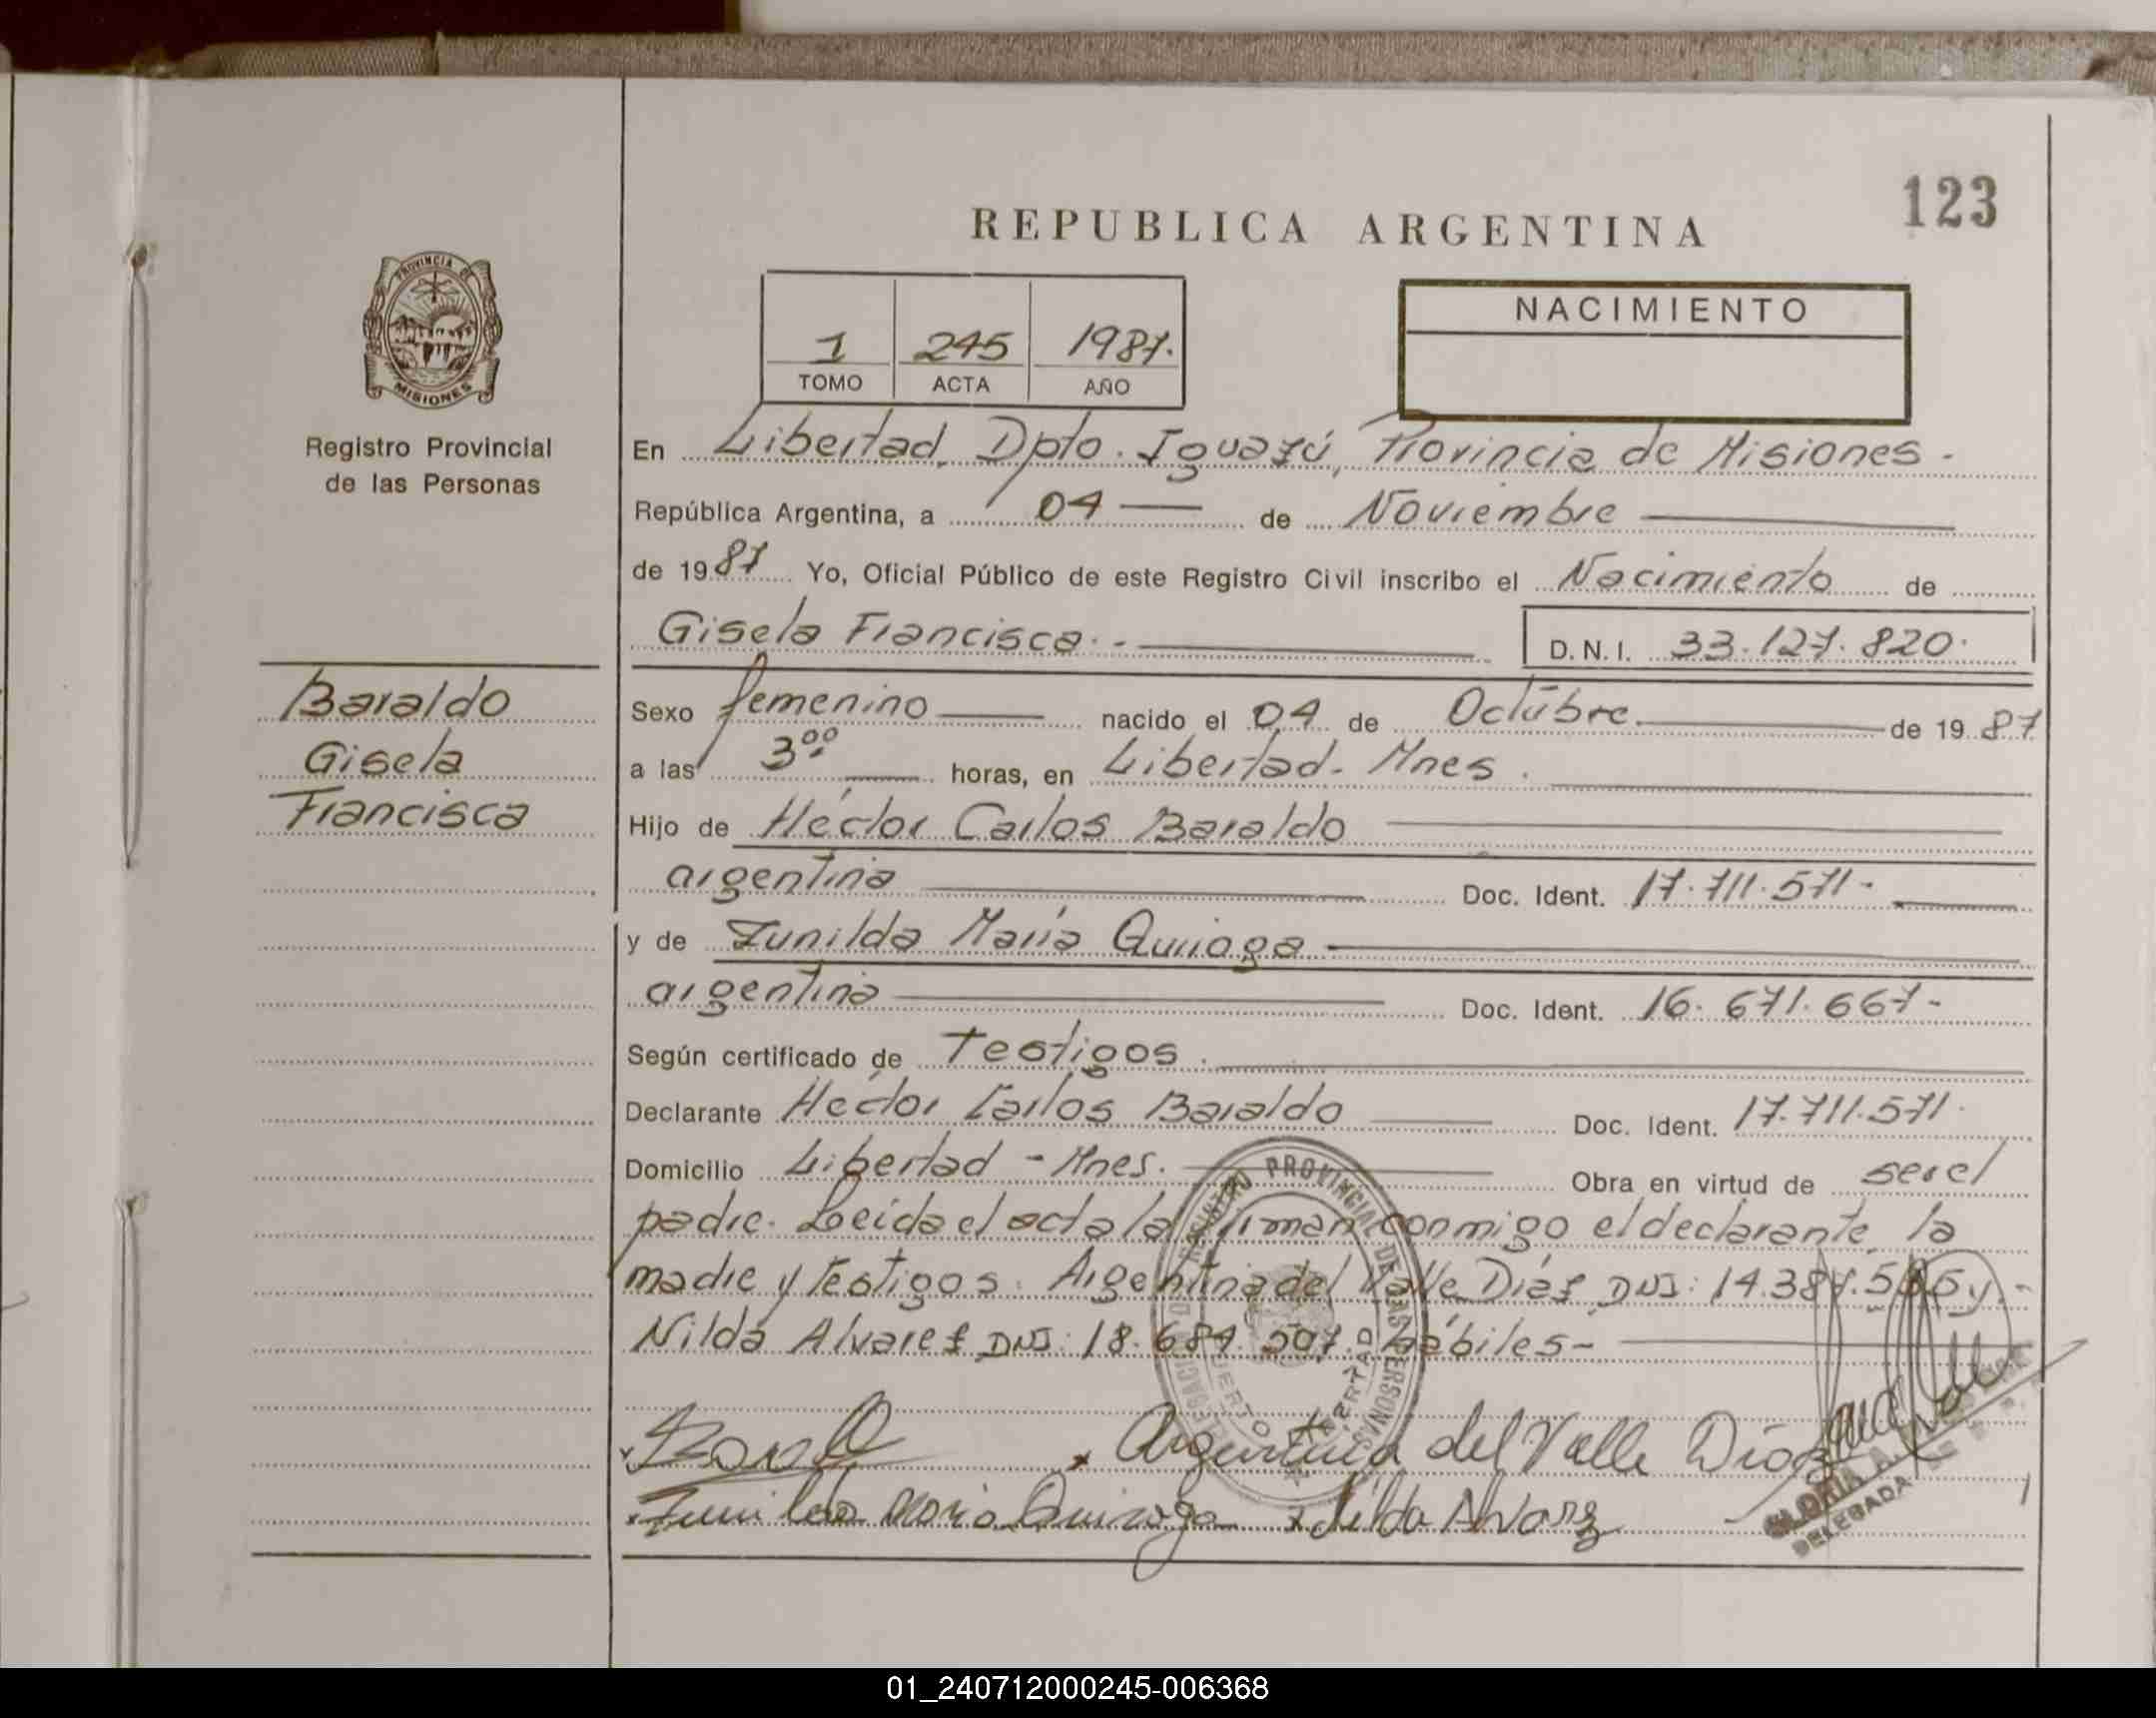 123
REPUBLICA ARGENTINA
PROVINCIA DE
MISIONES
Registro Provincial
de las Personas
1 245 1987.
TOMO ACTA AÑO
NACIMIENTO
En Libertad, Dpto. Iguazú, Provincia de Misiones -
República Argentina, a 04 de Noviembre
de 1987 Yo, Oficial Público de este Registro Civil inscribo el Nacimiento de
Gisela Francisca. - D.N.I. 33.127.820.
Baraldo
Gisela
Francisca
Sexo femenino nacido el 04 de Octubre de 1987
a las 3 00 horas, en Libertad - Mnes.
Hijo de Héctor Carlos Baraldo
argentina Doc. Ident. 17.711.571-
y de Zunilda María Quiroga
argentina Doc. Ident. 16.671.667-
Según certificado de Testigos.
Declarante Héctor Carlos Baraldo Doc. Ident. 17.711.571.
Domicilio Libertad - Mnes. Obra en virtud de ser el
padre. Leida el acta la firman conmigo el declarante, la
madre y testigos: Argentina del Valle Díaz DNI: 14.387. y -
Nilda Alvarez DNI: 18.684. hábiles-
REGISTRO PROVINCIAL DE LAS PERSONAS
LIBERTAD
Argentina del Valle Díaz
Zunilda Maria Quiroga Nilda Alvarez
GLORIA A.
DELEGADA
01_240712000245-006368